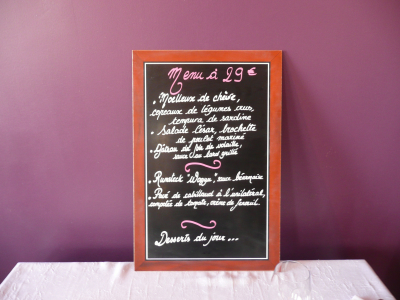 Menu à 29 €
• Moelleux de chèvre,
copeaux de légumes crus,
tempura de sardine
• Salade César, brochette
de poulet mariné
• Gâteau de foie de volaille,
sauce au lard grillé
• Rumsteck "Wagyu", sauce béarnaise
• Pavé de cabillaud à l'unilatéral,
compotée de tomate, crème de fenouil
• Desserts du jour...